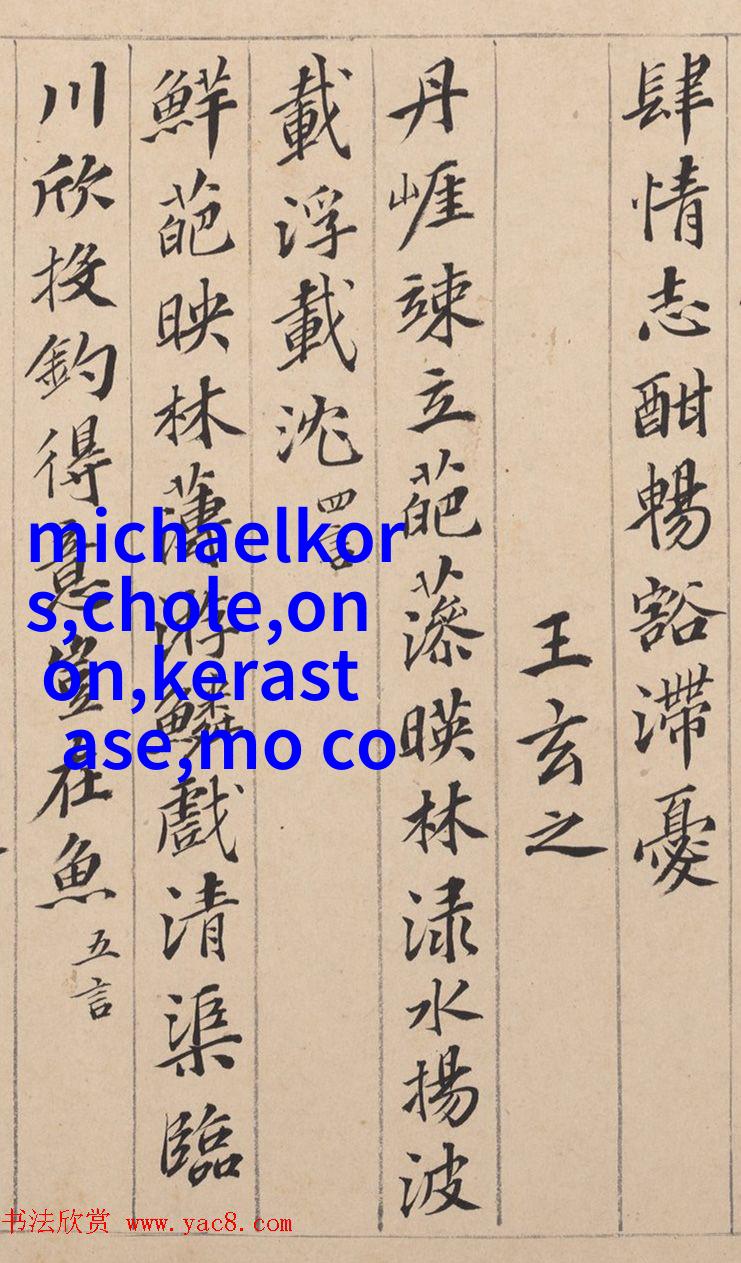 肆情志酣暢豁滯憂
王玄之
丹崖竦立葩藻暎林渌水揚波
載浮載沈 四言
鮮葩映林薄游鱗戲清渠臨
川欣投釣得意豈在魚 五言
michaelkor
s,chole,on
on,kerast
ase,mo co
书法欣赏 www.yac8.com